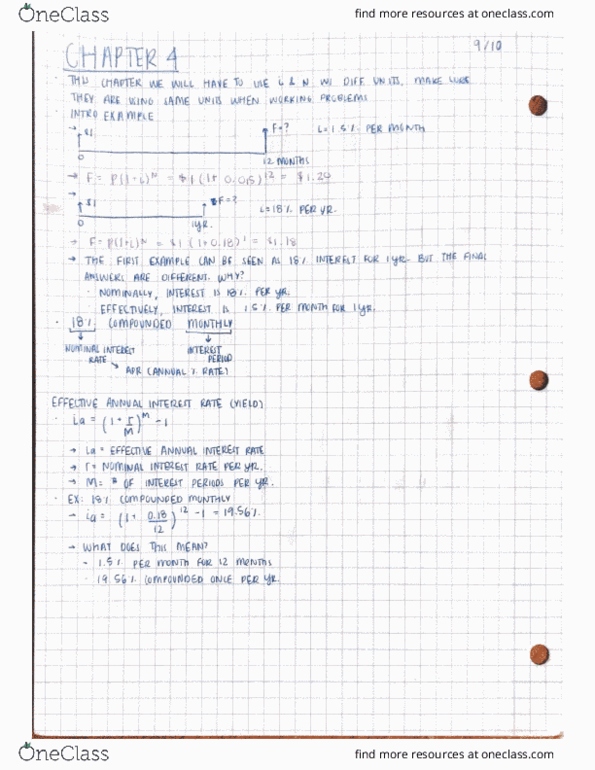 OneClass
find more resources at oneclass.com
9/10
CHAPTER 4
· THIS CHAPTER WE WILL HAVE TO USE i & N W/ DIFF UNITS. MAKE SURE
THEY ARE USING SAME UNITS WHEN WORKING PROBLEMS
INTRO EXAMPLE
→ $1 F=? i=1.5% PER MONTH
0 12 MONTHS
→ F = P(1+i)^N = $1 (1+ 0.015)^12 = $1.20
→ $1 F=? i=18% PER YR.
0 1YR.
→ F= P(1+i)^N = $1 (1+0.18)^1 = $1.18
→ THE FIRST EXAMPLE CAN BE SEEN AS 18% INTEREST FOR 1YR. BUT THE FINAL
ANSWERS ARE DIFFERENT. WHY?
· NOMINALLY, INTEREST IS 18% PER YR.
EFFECTIVELY, INTEREST IS 1.5% PER MONTH FOR 1YR.
· 18% COMPOUNDED MONTHLY
NOMINAL INTEREST INTEREST
RATE PERIOD
→ APR (ANNUAL % RATE)
EFFECTIVE ANNUAL INTEREST RATE (YIELD)
· ia = (1 + r/M)^M - 1
→ ia = EFFECTIVE ANNUAL INTEREST RATE
→ r = NOMINAL INTEREST RATE PER YR.
→ M = # OF INTEREST PERIODS PER YR.
· EX: 18% COMPOUNDED MONTHLY
→ ia = (1 + 0.18/12)^12 - 1 = 19.56%
→ WHAT DOES THIS MEAN?
- 1.5% PER MONTH FOR 12 MONTHS
· 19.56% COMPOUNDED ONCE PER YR.
OneClass
find more resources at oneclass.com